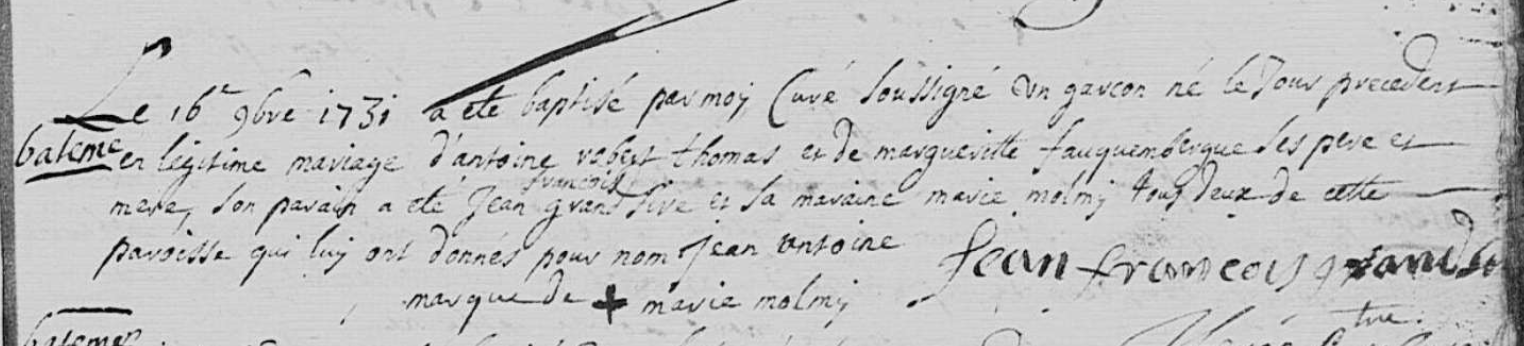 Le 16e 9bre 1731 a eté baptisé par moy Curé soussigné un garcon né le Jour precedent
bateme
en legitime mariage d'antoine robert thomas et de margueritte fauquembergue ses pere et
mere, son parain a eté Jean françois grand sire et la maraine marie molmy tous deux de cette
paroisse qui luy ont donnés pour nom Jean antoine
Jean francois grand
marque de + marie molmy
bateme